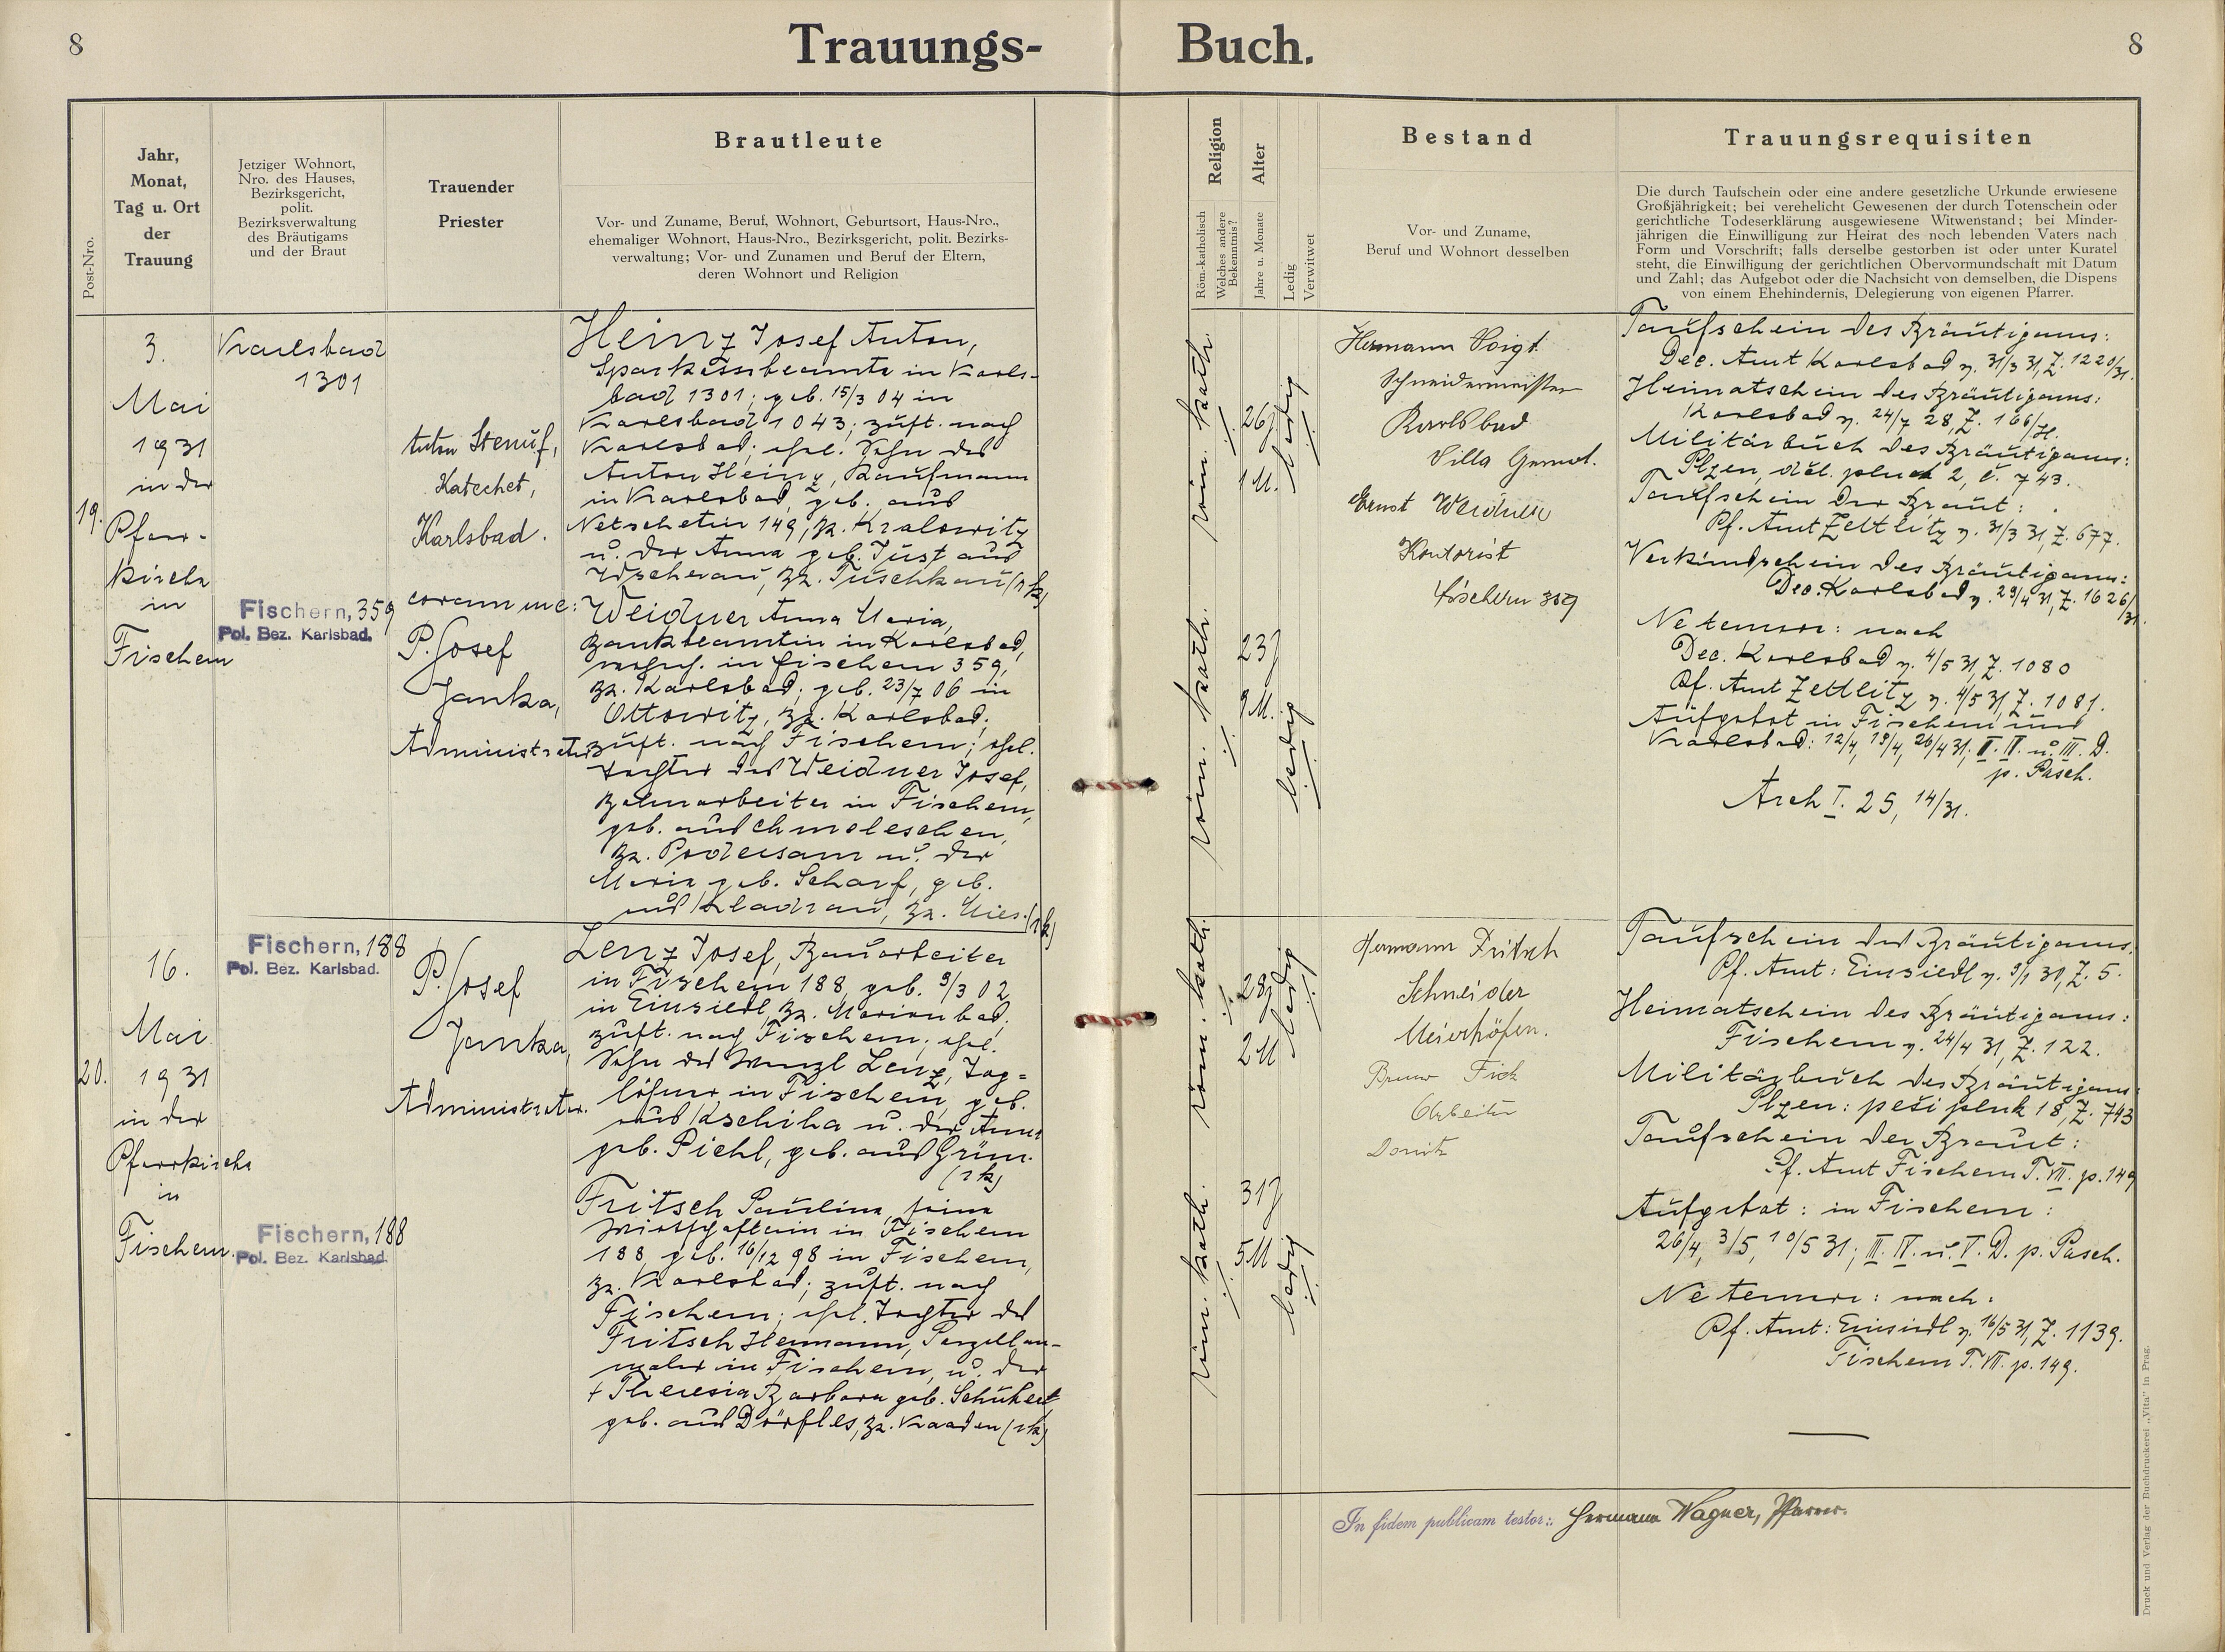 8
Trauungs-
Buch.
8
Post-Nro.
Jahr,
Monat,
Tag u. Ort
der
Trauung
Jetziger Wohnort,
Nro. des Hauses,
Bezirksgericht,
polit.
Bezirksverwaltung
des Bräutigams
und der Braut
Trauender
Priester
Brautleute
Vor- und Zuname, Beruf, Wohnort, Geburtsort, Haus-Nro.,
ehemaliger Wohnort, Haus-Nro., Bezirksgericht, polit. Bezirks-
verwaltung; Vor- und Zunamen und Beruf der Eltern,
deren Wohnort und Religion
Religion
Röm.-katholisch
Welches andere
Bekenntnis?
Alter
Jahre u. Monate
Ledig
Verwitwet
Bestand
Vor- und Zuname,
Beruf und Wohnort desselben
Trauungsrequisiten
Die durch Taufschein oder eine andere gesetzliche Urkunde erwiesene
Großjährigkeit; bei verehelicht Gewesenen der durch Totenschein oder
gerichtliche Todeserklärung ausgewiesene Witwenstand; bei Minder-
jährigen die Einwilligung zur Heirat des noch lebenden Vaters nach
Form und Vorschrift; falls derselbe gestorben ist oder unter Kuratel
steht, die Einwilligung der gerichtlichen Obervormundschaft mit Datum
und Zahl; das Aufgebot oder die Nachsicht von demselben, die Dispens
von einem Ehehindernis, Delegierung von eigenen Pfarrer.
19.
3.
Mai
1931
in der
Pfarr-
kirche
in
Fischern
Karlsbad
1301
Fischern, 359
Pol. Bez. Karlsbad.
Katechet,
Karlsbad.
coram me:
P. Josef
Janka,
Administrator
Heinz Josef Anton,
Sparkassebeamte in Karls-
bad 1301; geb. 15/3 04 in
Karlsbad 1043; zust. nach
Karlsbad; ehel. Sohn des
Anton Heinz, Kaufmann
in Karlsbad, geb. aus
Netschetin 149, Bz. Kralowitz
u. der Anna geb. Just aus
Wscherau, Bz. Tuschkau (rk)
Weidner Anna Maria,
Bankbeamtin in Karlsbad,
wohnh. in Fischern 359,
Bz. Karlsbad; geb. 23/7 06 in
Ottowitz, Bz. Karlsbad;
zust. nach Fischern; ehel.
Tochter des Weidner Josef,
Bahnarbeiter in Fischern,
geb. aus Chmeleschen,
Bz. Podersam u. der
Maria geb. Scharf, geb.
aus Kladrau, Bz. Mies. (rk)
röm. kath.
26 J
1 M.
ledig
röm. kath.
23 J
9 M.
ledig
Hermann Voigt
Schneidermeister
Karlsbad
Villa Gernot.
Ernst Weidner
Kontorist
Fischern 359
Taufschein des Bräutigams:
Dec. Amt Karlsbad v. 31/3 31, Z. 1220/31.
Heimatschein des Bräutigams:
Karlsbad v. 24/7 28, Z. 166/H.
Militärbuch des Bräutigams:
Plzen, děl. pluk 2, č. 743.
Taufschein der Braut:
Pf. Amt Zettlitz v. 31/3 31, Z. 677.
Verkündschein des Bräutigams:
Dec. Karlsbad v. 29/4 31, Z. 1626/31.
Ne temere: nach
Dec. Karlsbad v. 4/5 31, Z. 1080
Pf. Amt Zettlitz v. 4/5 31, Z. 1081.
Aufgebot in Fischern und
Karlsbad: 12/4, 19/4, 26/4 31; I. II. u. III. D.
p. Pasch.
Arch I. 25, 14/31.
20.
16.
Mai
1931
in der
Pfarrkirche
in
Fischern.
Fischern, 188
Pol. Bez. Karlsbad.
Fischern, 188
Pol. Bez. Karlsbad.
P. Josef
Janka,
Administrator.
Lenz Josef, Bauarbeiter
in Fischern 188, geb. 9/3 02
in Einsiedl, Bz. Marienbad;
zust. nach Fischern; ehel.
Sohn des Wenzl Lenz, Tag=
löhner in Fischern, geb.
aus Kschiha u. der Anna
geb. Piehl, geb. aus Grün.
(rk)
Fritsch Paulina, seine
Wirtschafterin in Fischern
188, geb. 16/12 98 in Fischern,
Bz. Karlsbad; zust. nach
Fischern; ehel. Tochter des
Fritsch Hermann, Porzellan-
maler in Fischern, u. der
† Theresia Barbara geb. Schubert
geb. aus Dörfles, Bz. Kaaden (rk)
röm. kath.
28 J
2 M
ledig
röm. kath.
31 J
5 M
ledig
Hermann Fritsch
Schneider
Meierhöfen.
Bruno
Arbeiter
Donitz
Taufschein des Bräutigams.
Pf. Amt: Einsiedl v. 9/1 31, Z. 5.
Heimatschein des Bräutigams:
Fischern v. 24/4 31, Z. 122.
Militärbuch des Bräutigams:
Plzen: pěší pluk 18, Z. 743
Taufschein der Braut:
Pf. Amt Fischern T. VII. p. 149
Aufgebot: in Fischern:
26/4, 3/5, 10/5 31; III. IV. u. V. D. p. Pasch.
Ne temere: nach:
Pf. Amt: Einsiedl v. 16/5 31, Z. 1139.
Fischern T. VII. p. 149.
In fidem publicam testor:: Hermann Wagner, Pfarrer.
Druck und Verlag der Buchdruckerei „Vita" in Prag.